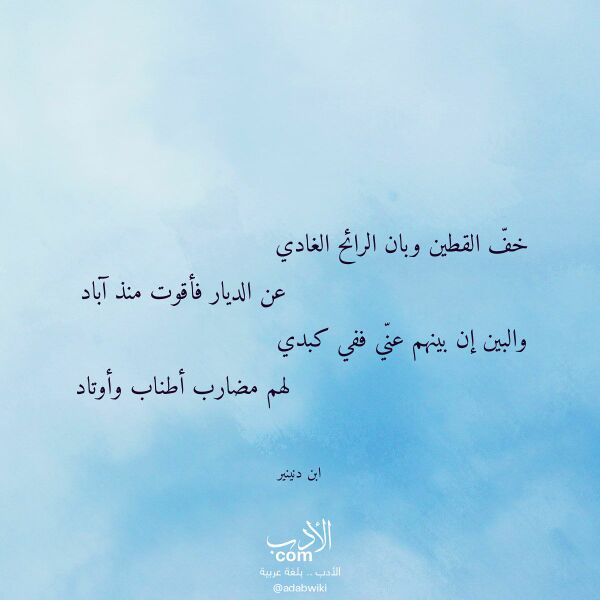 خفّ القطين وبان الرائح الغادي
عن الديار فأقوت منذ آباد
والبين إن بينهم عنّي ففي كبدي
لهم مضارب أطناب وأوتاد
ابن دنينير
الأدب
com
الأدب .. بلغة عربية
@adabwiki